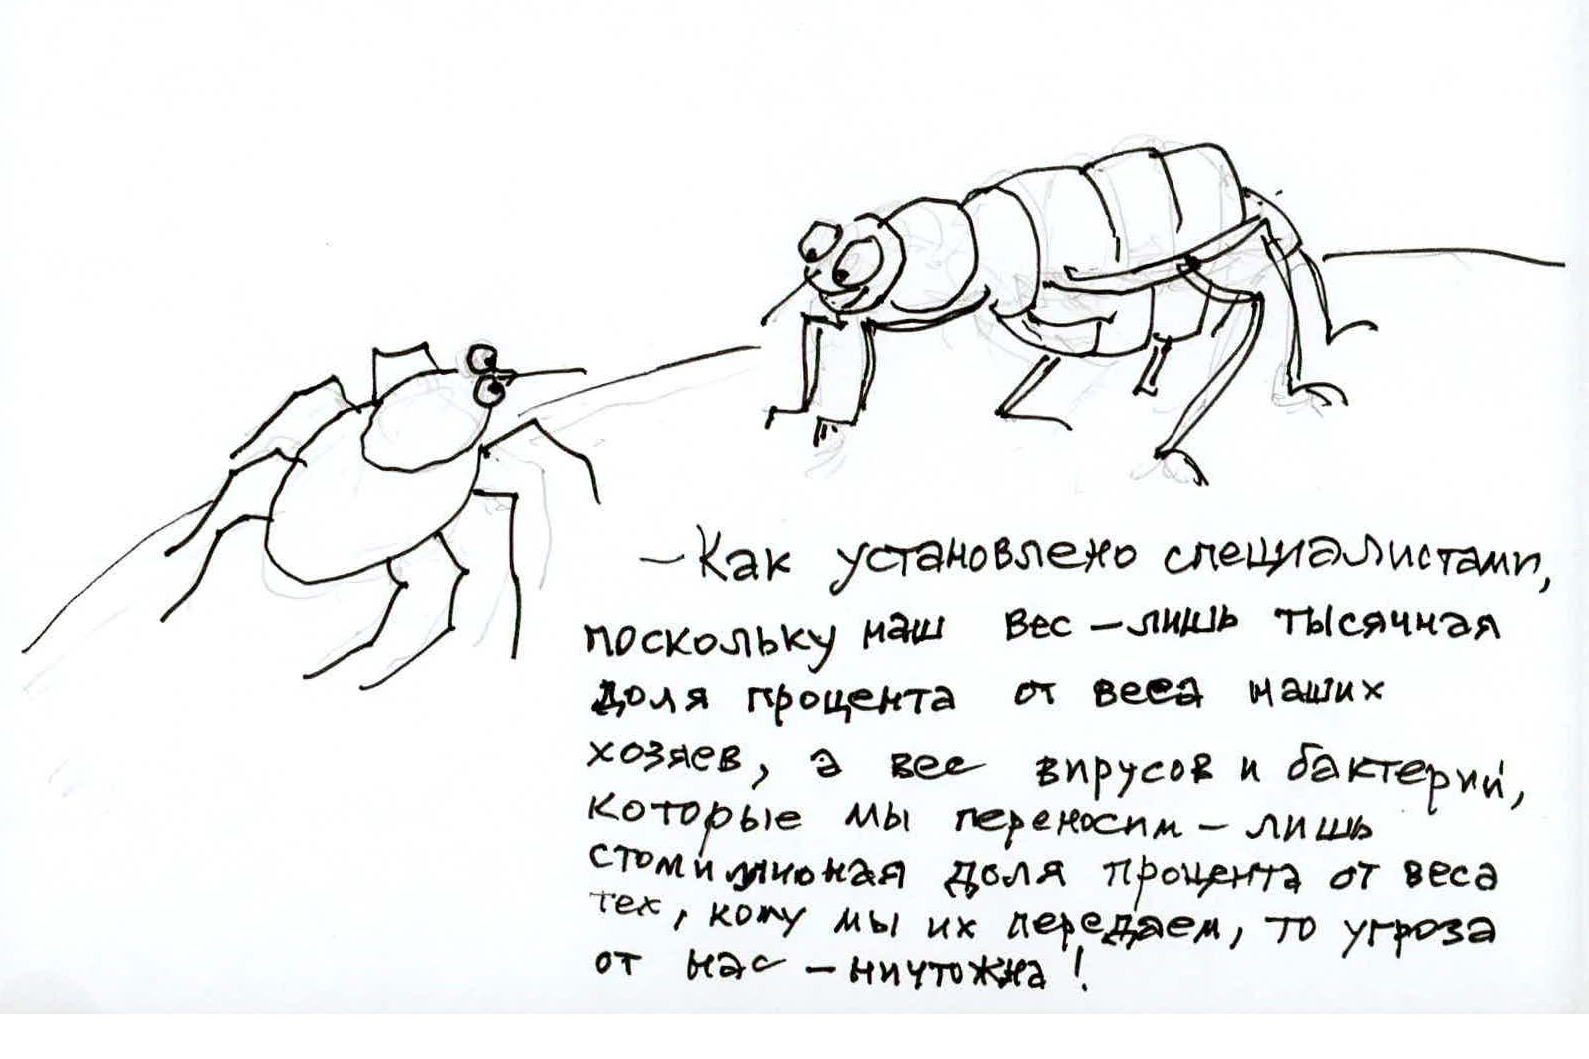 — Как установлено специалистами,
поскольку наш вес – лишь тысячная
доля процента от веса наших
хозяев, а вес вирусов и бактерий,
которые мы переносим – лишь
стомиллионая доля процента от веса
тех, кому мы их передаем, то угроза
от нас – ничтожна!